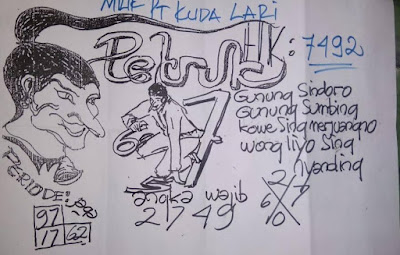 MILIK PT KUDA LARI
Petruk HK : 7492
Gunung Sindoro
Gunung Sumbing
Kowe Sing merjuangno
wong liyo Sing
nyanding
67
2 7
6 0
PERIODE :
97
17 62
angka wajib
2 7 4 9